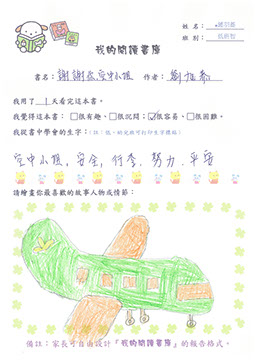 姓名：
班別：
我的閱讀書庫
書名：謝謝你空中小姐 作者：劉旭恭
我用了 1 天看完這本書。
我覺得這本書：□很有趣、□很沉悶；☑很容易、□很困難。
我從書中學會的生字：
空中小姐，安全，行李，努力，平安
請繪畫你最喜歡的故事人物或情節：
備註：家長可自由設計「我的閱讀書庫」的報告格式。